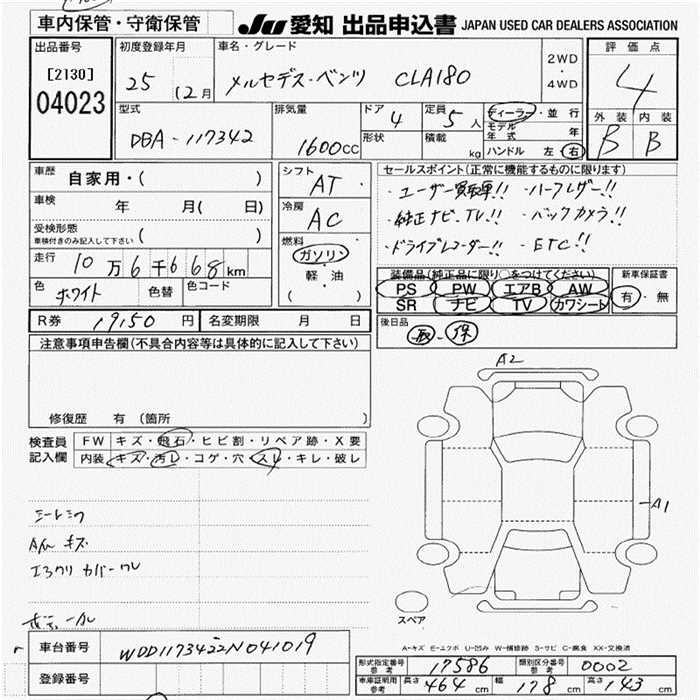 車内保管・守衛保管
JU 愛知 出品申込書 JAPAN USED CAR DEALERS ASSOCIATION
出品番号
[2130]
04023
初度登録年月
25 12月
車名・グレード
メルセデス・ベンツ CLA180
2WD
・
4WD
評価点
4
外装 内装
B B
型式
DBA-117342
排気量
1600CC
ドア 4
形状
定員 5人
積載 kg
ディーラー・並行
モデル年式 年
ハンドル 左 右
車歴 自家用・( )
車検 年 月( 日)
受検形態
車検付きのみ記入して下さい ( )
走行 10万6千668km
色 ホワイト 色替 色コード
シフト AT
冷房 AC
燃料
ガソリン
軽・油
( )
セールスポイント(正常に機能するものに限ります)
・ユーザー買取車!! ・ハーフレザー!!
・純正ナビ・TV!! ・バックカメラ!!
・ドライブレコーダー!! ・ETC!!
装備品(純正品に限り○をつけてください)
PS PW エアB AW
SR ナビ TV カワシート
新車保証書
有・無
R券 19150円 名変期限 月 日
後日品
取-保
注意事項申告欄(不具合内容等は具体的に記入して下さい)
修復歴 有 (箇所 )
検査員
記入欄
FW キズ・飛石・ヒビ割・リペア跡・X要
内装 キズ・汚レ・コゲ・穴・スレ・キレ・破レ
A2
A1
A/W キズ
エアクリカバーワレ
スペア
A-キズ E-エクボ U-凹み W-補修跡 S-サビ C-腐食 XX-交換済
車台番号 WDD1173422N041019
登録番号
形式指定番号 参考 17586 類別区分番号 参考 0002
車庫証明用 参考 長さ 464cm 幅 178cm 高さ 143cm